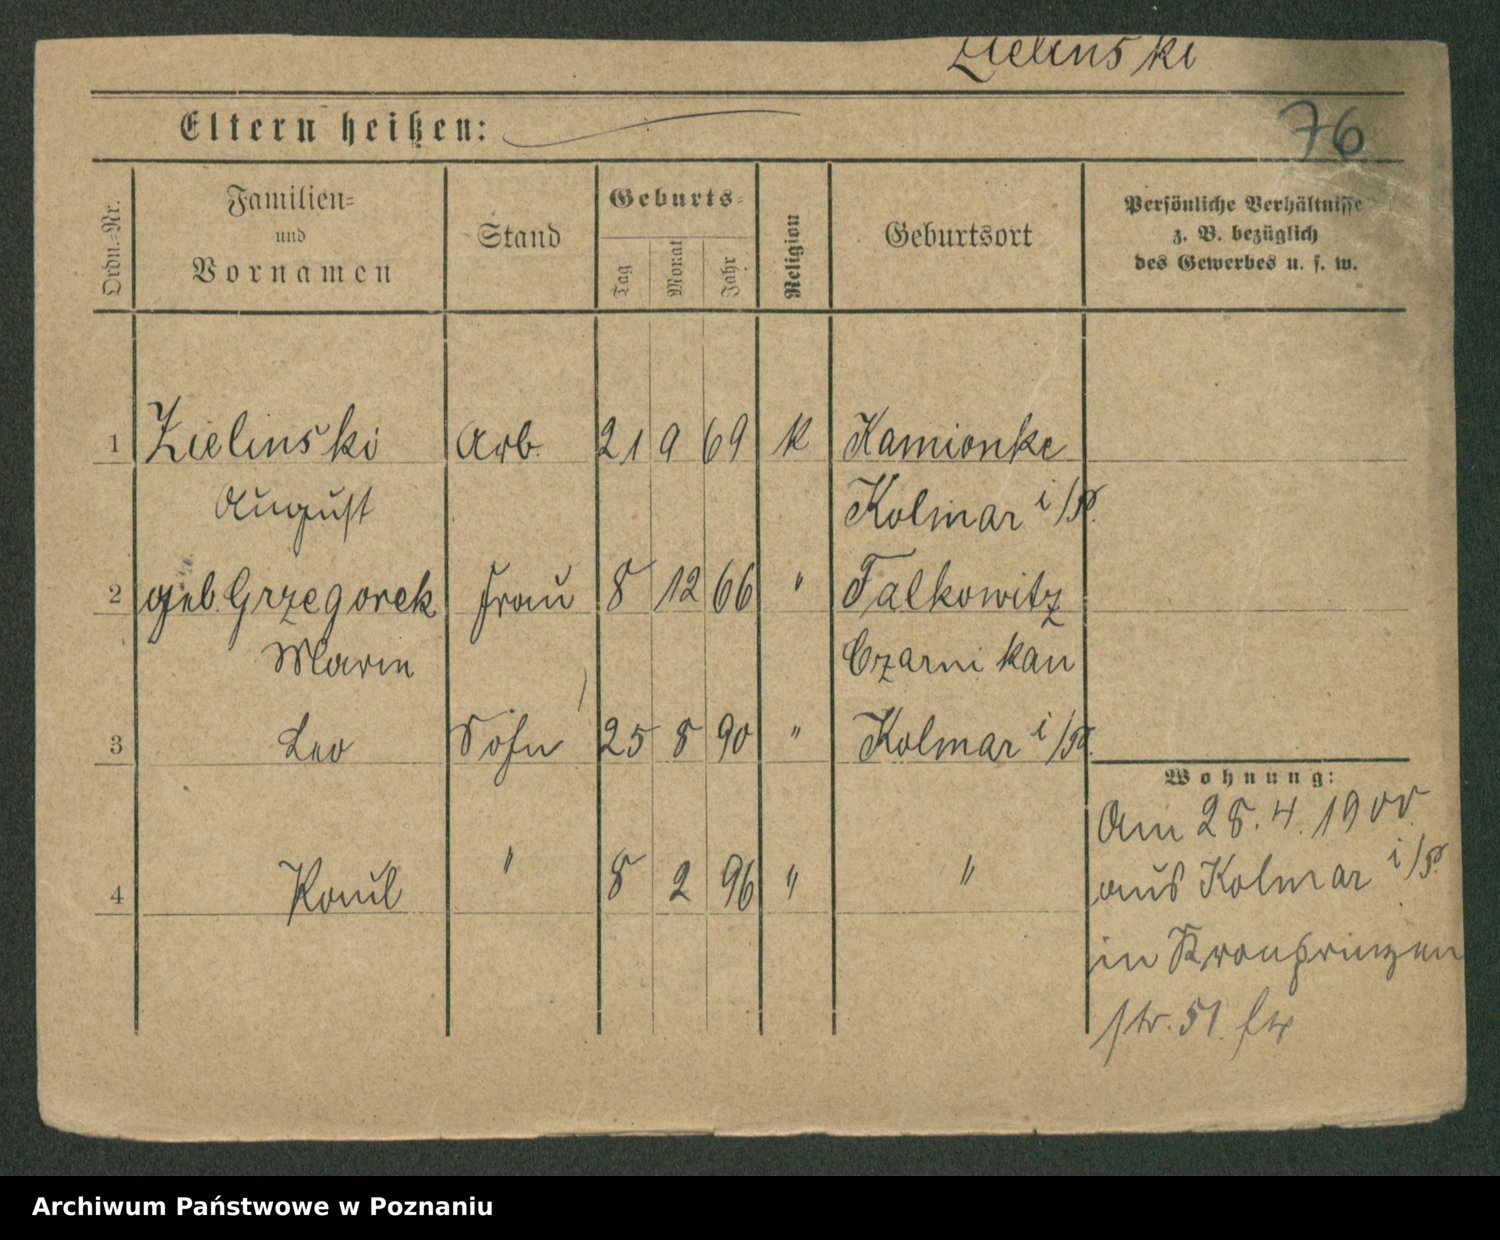 Zielinski
76
Eltern heißen:
Ordn.-Nr.
Familien-
und
Vornamen
Stand
Geburts-
Tag
Monat
Jahr
Religion
Geburtsort
Persönliche Verhältnisse
z. B. bezüglich
des Gewerbes u. s. w.
1 Zielinski Arb. 21 9 69 K Kamionke
August Kolmar i/P.
2 geb. Grzegorek Frau 8 12 66 " Falkowitz
Marie Czarnikau
3 Leo Sohn 25 8 90 " Kolmar i/P.
Wohnung:
Am 28.4.1900
aus Kolmar i/P.
4 Paul " 8 2 96 " "
in Kronprinzen
str. 51.
Archiwum Państwowe w Poznaniu